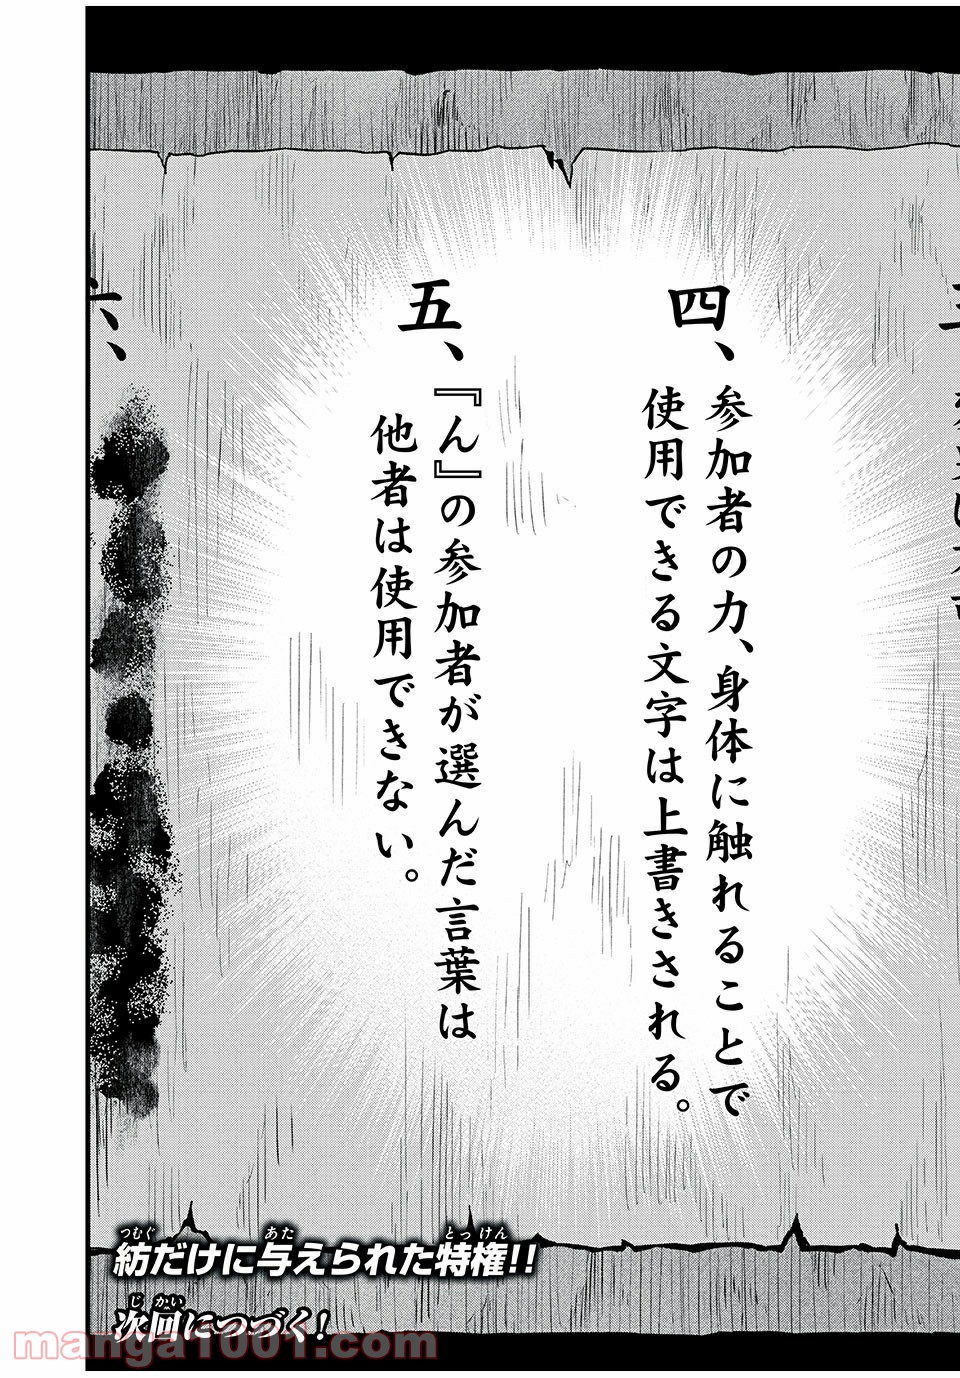 四、参加者の力、身体に触れることで
使用できる文字は上書きされる。
五、『ん』の参加者が選んだ言葉は
他者は使用できない。
六、
つむぐ あた とっけん
紡だけに与えられた特権!!
じ かい
次回につづく!
manga1001.com